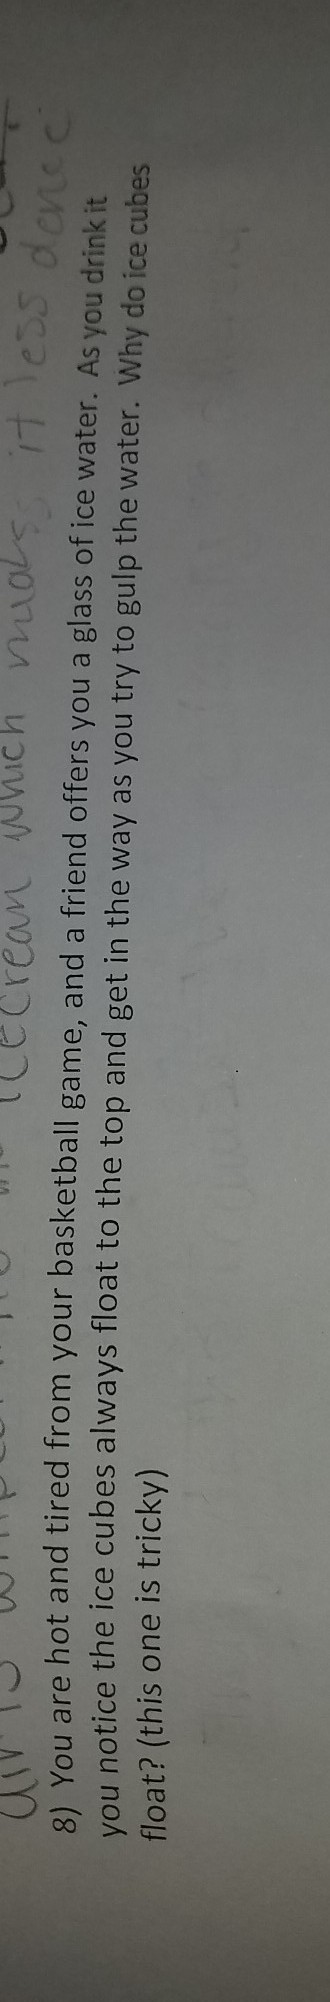 icecream which makes it less dence
8) You are hot and tired from your basketball game, and a friend offers you a glass of ice water. As you drink it
you notice the ice cubes always float to the top and get in the way as you try to gulp the water. Why do ice cubes
float? (this one is tricky)